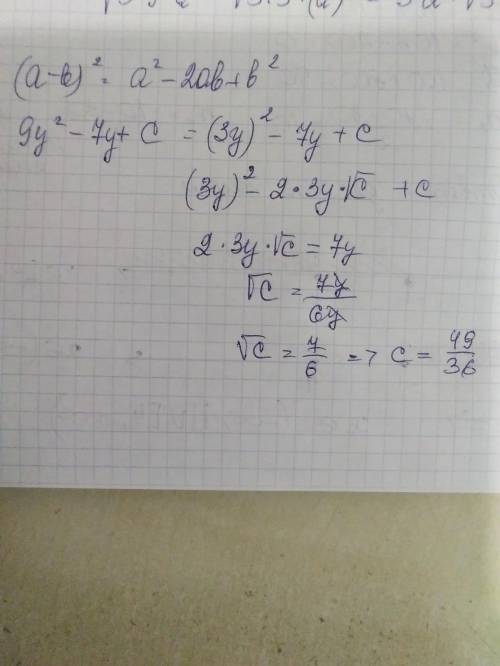 (a-b)² = a² - 2ab + b²
9y² - 7y + C = (3y)² - 7y + C
(3y)² - 2 · 3y · √C + C
2 · 3y · √C = 7y
√C = 7y/6y
√C = 7/6 => C = 49/36